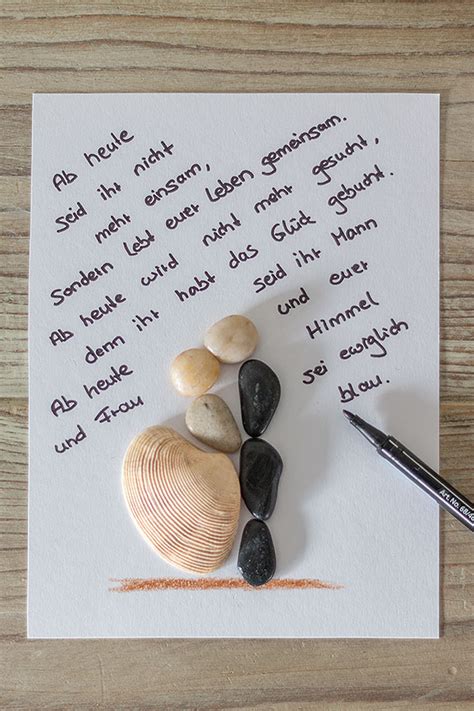 Ab heute
seid ihr nicht
mehr einsam,
Sondern lebt euer Leben gemeinsam.
Ab heute wird nicht mehr gesucht,
denn ihr habt das Glück gebucht.
Ab heute seid ihr Mann
und Frau und euer
Himmel
sei ewiglich
blau.
Art. No.